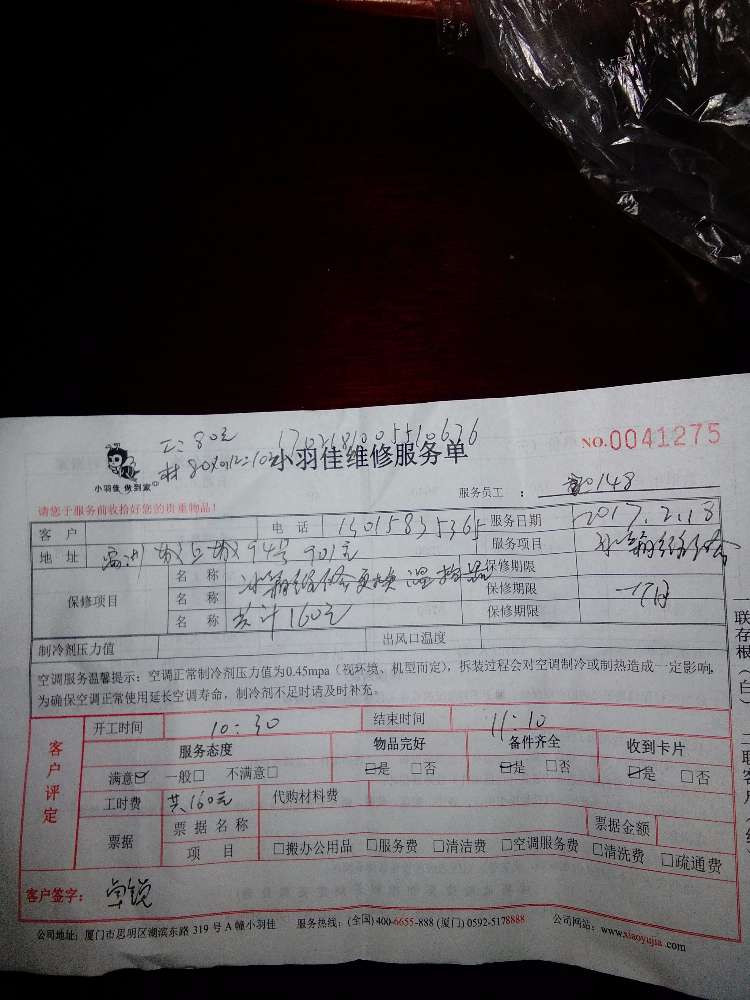 工:80元 1702181005510626
材:80
NO.0041275
小羽佳 做到家
小羽佳维修服务单
服务员工 : 0148
请您于服务前收拾好您的贵重物品!
客户 电话 13015835365 服务日期 2017.2.18
地址 号901 服务项目 冰箱维修
保修项目 名称 冰箱维修更换温控器 保修期限
名称 共计160元 保修期限 一个月
名称 保修期限
制冷剂压力值 出风口温度
空调服务温馨提示:空调正常制冷剂压力值为0.45mpa(视环境、机型而定),拆装过程会对空调制冷或制热造成一定影响,
为确保空调正常使用延长空调寿命,制冷剂不足时请及时补充。
客户评定
开工时间 10:30 结束时间 11:10
服务态度 物品完好 备件齐全 收到卡片
满意☑ 一般□ 不满意□ ☑是 □否 ☑是 □否 ☑是 □否
工时费 共160元 代购材料费
票据 票据名称 票据金额
项目 □搬办公用品 □服务费 □清洁费 □空调服务费 □清洗费 □疏通费
客户签字:
公司地址:厦门市思明区湖滨东路 319 号 A 幢小羽佳 服务热线:(全国)400-6655-888 (厦门) 0592-5178888 公司网站:www.xiaoyujia.com
联
存根(白)